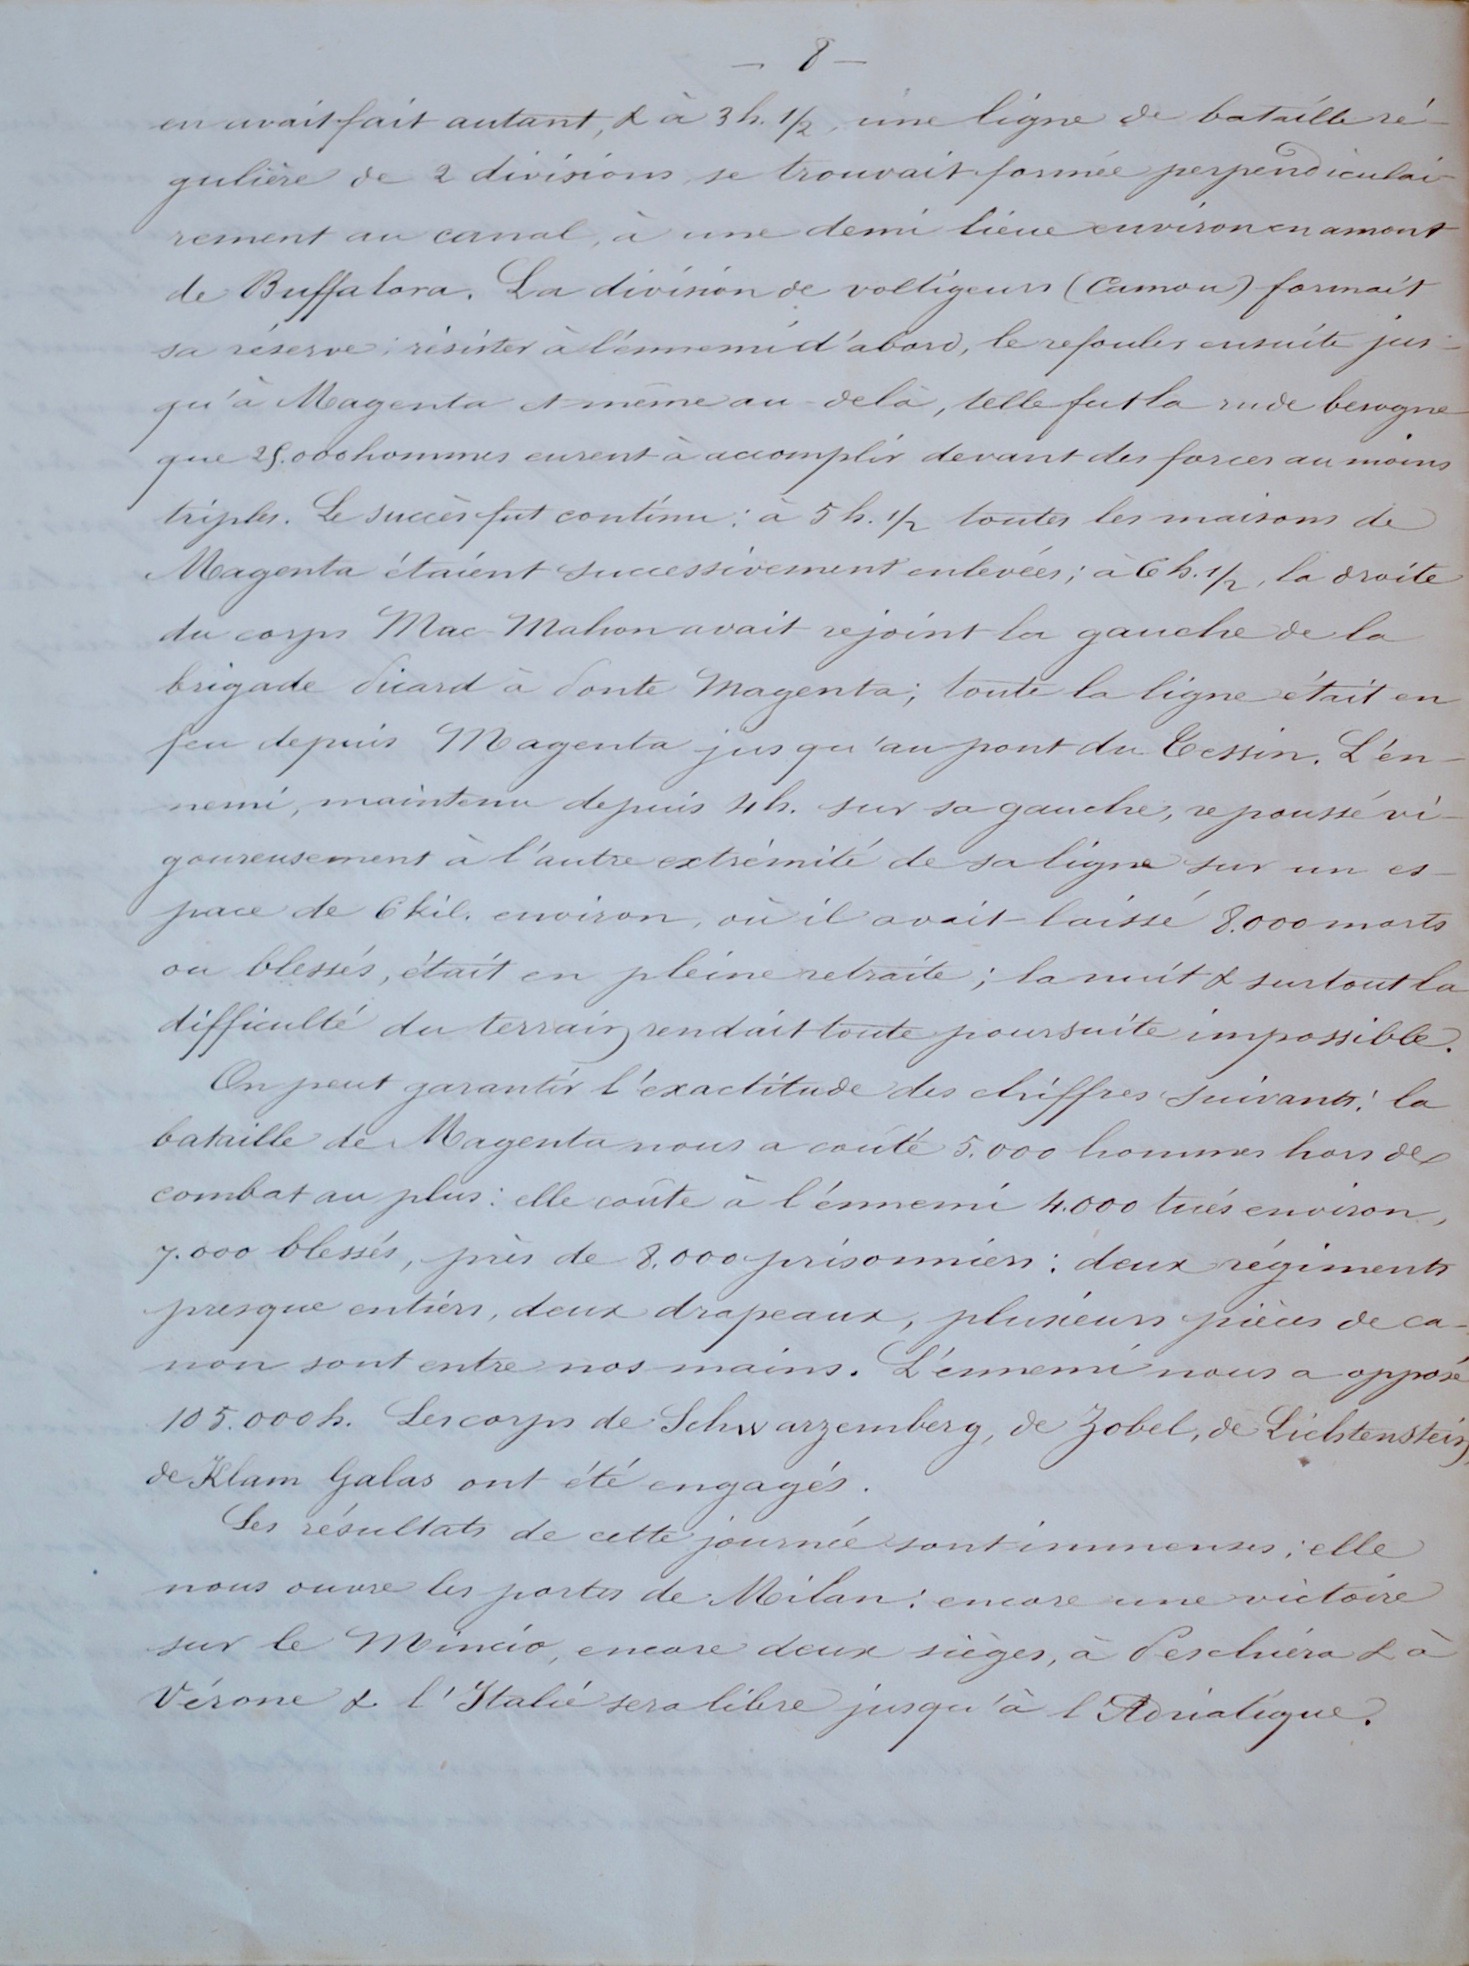 — 8 —
en avait fait autant, & à 3 h. 1/2, une ligne de bataille ré-
gulière de 2 divisions se trouvait formée perpendiculai-
rement au canal, à une demi lieue environ en amont
de Buffalora. La division de voltigeurs (Camou) formait
sa réserve; résister à l'ennemi d'abord, le refouler ensuite jus-
qu'à Magenta et même au-delà, telle fut la rude besogne
que 25.000 hommes eurent à accomplir devant des forces au moins
triples. Le succès fut continu: à 5 h. 1/2 toutes les maisons de
Magenta étaient successivement enlevées; à 6 h. 1/2, la droite
du corps Mac-Mahon avait rejoint la gauche de la
brigade Picard à Ponte Magenta; toute la ligne était en
feu depuis Magenta jusqu'au pont du Tessin. L'en-
nemi, maintenu depuis 4 h. sur sa gauche, repoussé vi-
goureusement à l'autre extrémité de sa ligne sur un es-
pace de 6 kil. environ, où il avait laissé 8.000 morts
ou blessés, était en pleine retraite; la nuit & surtout la
difficulté du terrain rendait toute poursuite impossible.
On peut garantir l'exactitude des chiffres suivants: la
bataille de Magenta nous a coûté 5.000 hommes hors de
combat au plus: elle coûte à l'ennemi 4.000 tués environ,
7.000 blessés, près de 8.000 prisonniers: deux régiments
presque entiers, deux drapeaux, plusieurs pièces de ca-
non sont entre nos mains. L'ennemi nous a opposé
105.000 h. Les corps de Schwarzemberg, de Zobel, de Lichtenstein,
de Klam Galas ont été engagés.
Les résultats de cette journée sont immenses; elle
nous ouvre les portes de Milan: encore une victoire
sur le Mincio, encore deux sièges, à Peschiéra & à
Vérone & l'Italie sera libre jusqu'à l'Adriatique.